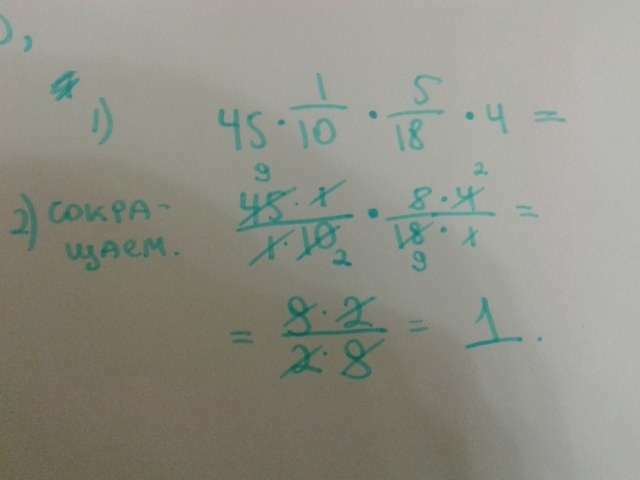 ),
1) 45 · 1/10 · 5/18 · 4 =
2) СОКРА-
ЩАЕМ.
9 2
45 · 1 / 1 · 10 · 8 · 4 / 18 · 1 =
2 9
= 9 · 2 / 2 · 9 = 1.